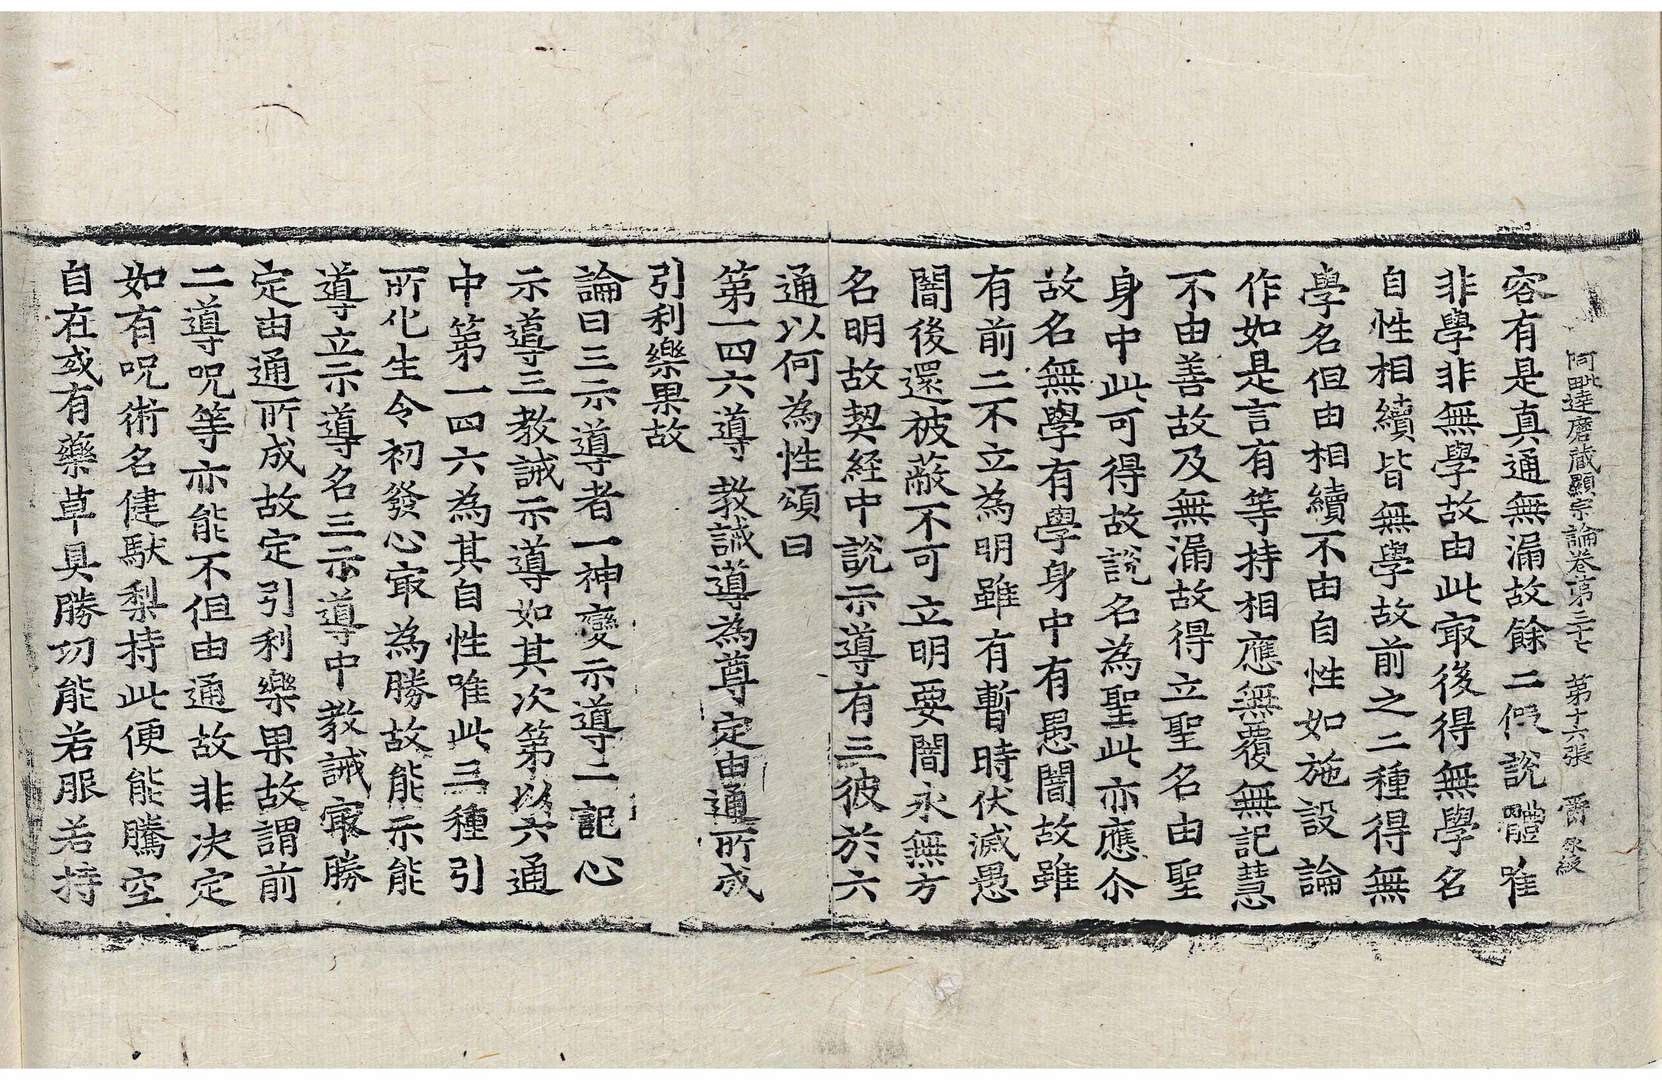 阿毗達磨藏顯宗論卷第三十七 第十六張 爵
容有是真通無漏故餘二假說體唯
非學非無學故由此㝡後得無學名
自性相續皆無學故前之二種得無
學名但由相續不由自性如施設論
作如是言有等持相應無覆無記慧
不由善故及無漏故得立聖名由聖
身中此可得故說名為聖此亦應尒
故名無學有學身中有愚闇故雖
有前二不立為明雖有暫時伏滅愚
闇後還被蔽不可立明要闇永無方
名明故契経中說示導有三彼於六
通以何為性頌曰
第一四六導 教誡導為尊 定由通所成
引利樂果故
論曰三示導者一神變示導二記心
示導三教誡示導如其次第以六通
中第一四六為其自性唯此三種引
所化生令初發心㝡為勝故能示能
導立示導名三示導中教誡㝡勝
定由通所成故定引利樂果故謂前
二導呪等亦能不但由通故非決定
如有呪術名健馱梨持此便能騰空
自在或有藥草具勝功能若服若持